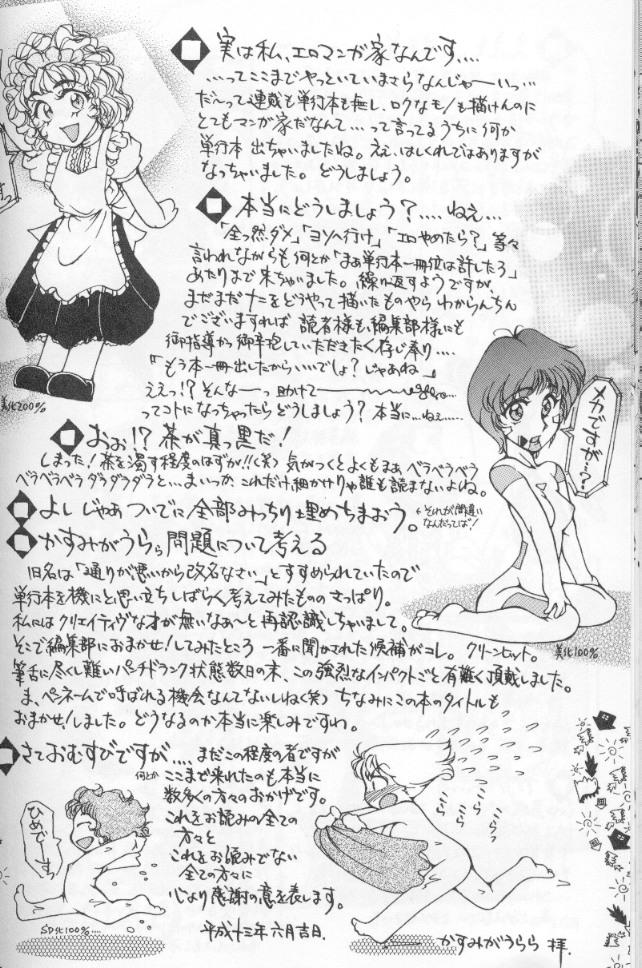 実は私、エロマンガ家なんです....
...ってここまでやっといていまさらなんじゃーいっ...
だ〜って連載も単行本も無し、ロクなモノも描けんのに
とてもマンガ家だなんて...って言ってるうちに何か
単行本 出ちゃいましたね。ええ、はしくれではありますが
なっちゃいました。どうしましょう。
本当にどうしましょう?....ねえ...
「全っ然ダメ」「ヨソへ行け」「エロやめたら?」等々
言われながらも何とか「まあ単行本一冊位は許したろ」
あたりまで来ちゃいました。繰り返すようですが、
まだまだナニをどうやって描いたものやら わからんちん
でございますれば 読者様も編集部様にも
御指導かつ御辛抱していただきたく存じ奉り....
「もう本一冊出したからいいでしょ?じゃあね」
ええっ!?そんなーっ 助けてー
ってコトになっちゃったらどうしましょう?本当に...ねえ......
美化200%
メカですが...?
美化100%
おお!?茶が真っ黒だ!
しまった!茶を濁す程度のはずが!!(笑) 気がつくとよくもまあ ベラベラベラ
ベラベラベラ ダラダラダラと...まいっか、これだけ細かけりゃ誰も読まないよね。
よし じゃあ ついでに全部みっちり埋めちまおう。
←それが間違い
なんだってば!
かすみがうらら問題について考える
旧名は「通りが悪いから改名なさい」とすすめられていたので
単行本を機にと思い立ちしばらく考えてみたものの さっぱり。
私にはクリエイティヴな才が無いなあ〜と 再認識しちゃいまして。
そこで編集部におまかせ!してみたところ 一番に聞かされた候補がコレ。クリーンヒット。
筆舌に尽くし難いパンチドランク状態数日の末、この強烈なインパクトごと有難く頂戴しました。
ま、ペンネームで呼ばれる機会なんてないしね(笑) ちなみにこの本のタイトルも
おまかせ!しました。どうなるのか本当に楽しみですわ。
さておむすびですが....まだこの程度の者ですが
何とか ここまで来れたのも本当に
数多くの方々のおかげです。
これをお読みの全ての
方々と
これをお読みでない
全ての方々に
心より感謝の意を表します。
平成十三年 六月吉日.
かすみがうらら 拝.
ひめです。
SD化100%....
うらら
うらら